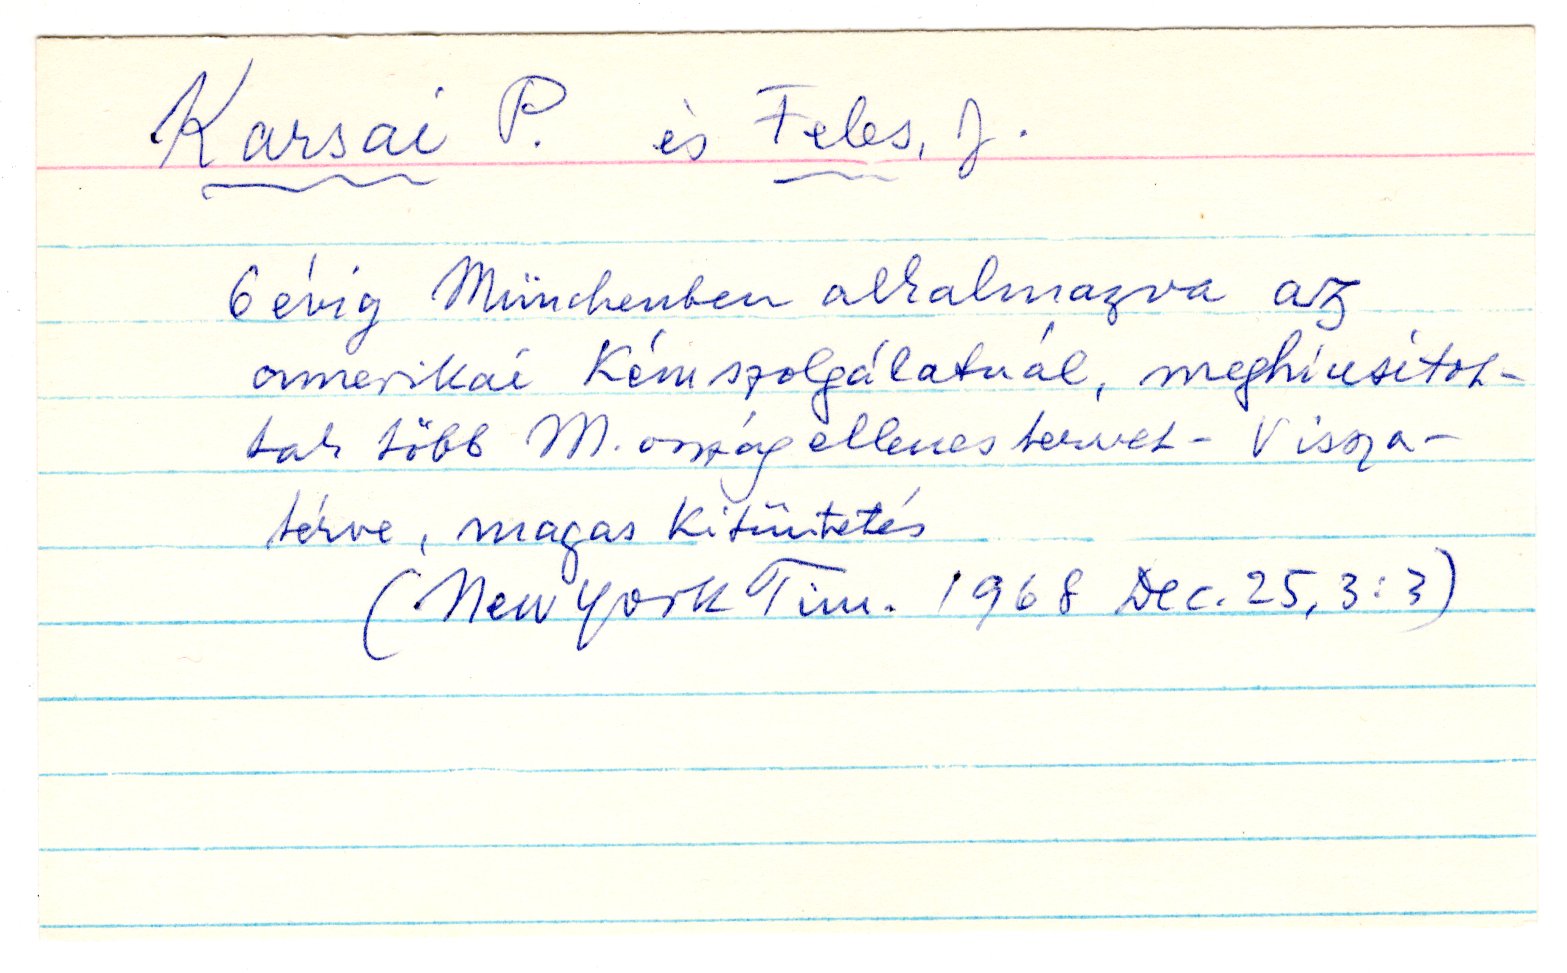 Karsai P. és Feles, J.
6 évig Münchenben alkalmazva az
amerikai Kémszolgálatnál, meghiusitot-
tak több M. ország ellenes tervet - Vissza-
térve, magas kitüntetés
(New York Tim. 1968 Dec. 25, 3:3)